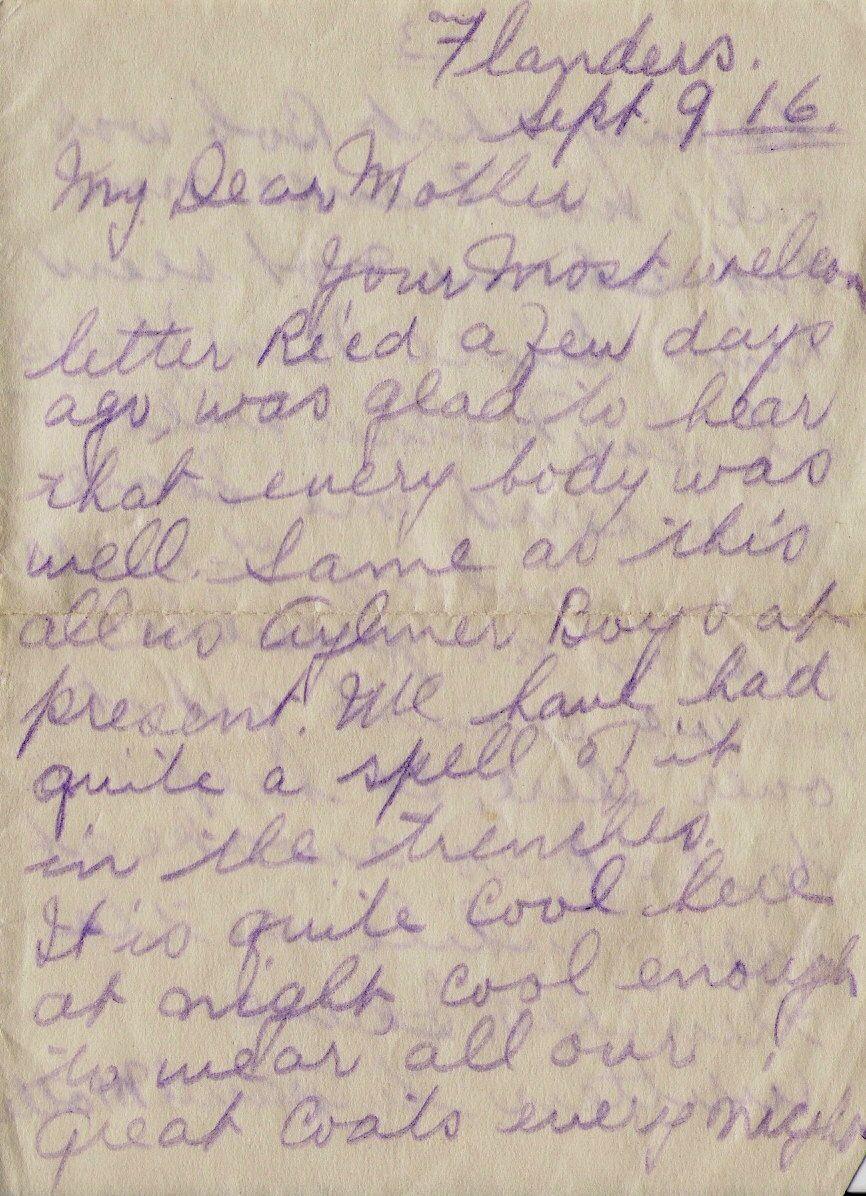 Flanders.
Sept. 9 16.
My Dear Mother
Your most welcom
letter Re'ed a few days
ago, was glad to hear
that every body was
well. Same as this
all us Aylmer Boys at
present. We have had
quite a spell of it
in the trenches.
It is quite cool here
at night, cool enough
to wear all our
great coats every night